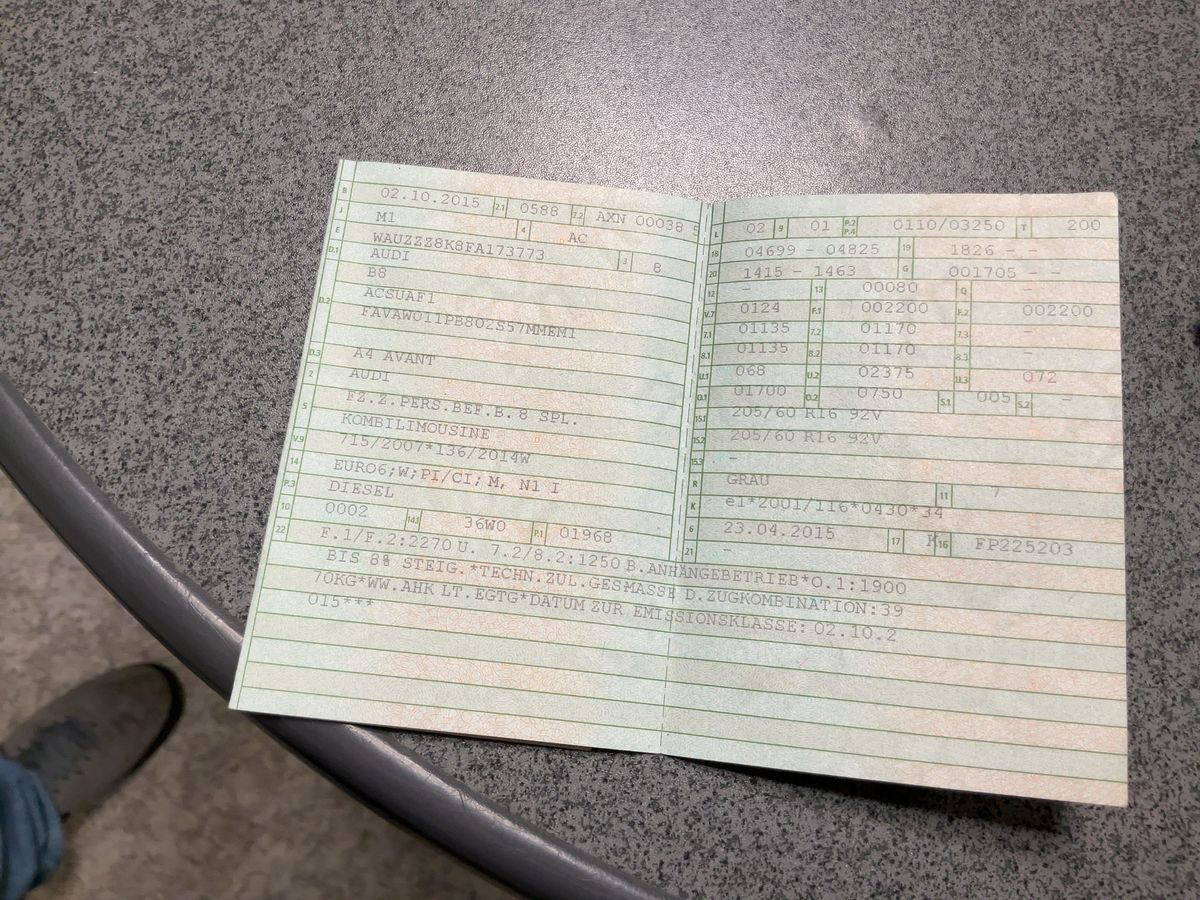 B 02.10.2015 2.1 0588 2.2 AXN 00038 5
J M1 4 AC
E WAUZZZ8K8FA173773 3 8
D.1 AUDI
B8
D.2 ACSUAF1
FAVAWU11PB802S57MMEM1
D.3 A4 AVANT
2 AUDI
5 FZ.Z.PERS.BEF.B. 8 SPL.
KOMBILIMOUSINE
V.9 715/2007*136/2014W
14 EURO6;W;PI/CI; M, N1 I
P.3 DIESEL
10 0002 14.1 36W0 P.1 01968
22 F.1/F.2:2270 U. 7.2/8.2:1250 B.ANHÄNGEBETRIEB*O.1:1900
BIS 8% STEIG.*TECHN.ZUL.GESMASSE D.ZUGKOMBINATION:39
70KG*WW.AHK LT.EGTG*DATUM ZUR EMISSIONSKLASSE: 02.10.2
015***
L 02 9 01 P.2 P.4 0110/03250 T 200
18 04699 - 04825 19 1826 - -
20 1415 - 1463 G 001705 - -
12 - 13 00080 Q -
V.7 0124 F.1 002200 F.2 002200
7.1 01135 7.2 01170 7.3 -
8.1 01135 8.2 01170 8.3 -
U.1 068 U.2 02375 U.3 072
O.1 01700 O.2 0750 S.1 005 S.2 -
15.1 205/60 R16 92V
15.2 205/60 R16 92V
15.3 -
R GRAU 11 7
K e1*2001/116*0430*34
6 23.04.2015 17 K 16 FP225203
21 -